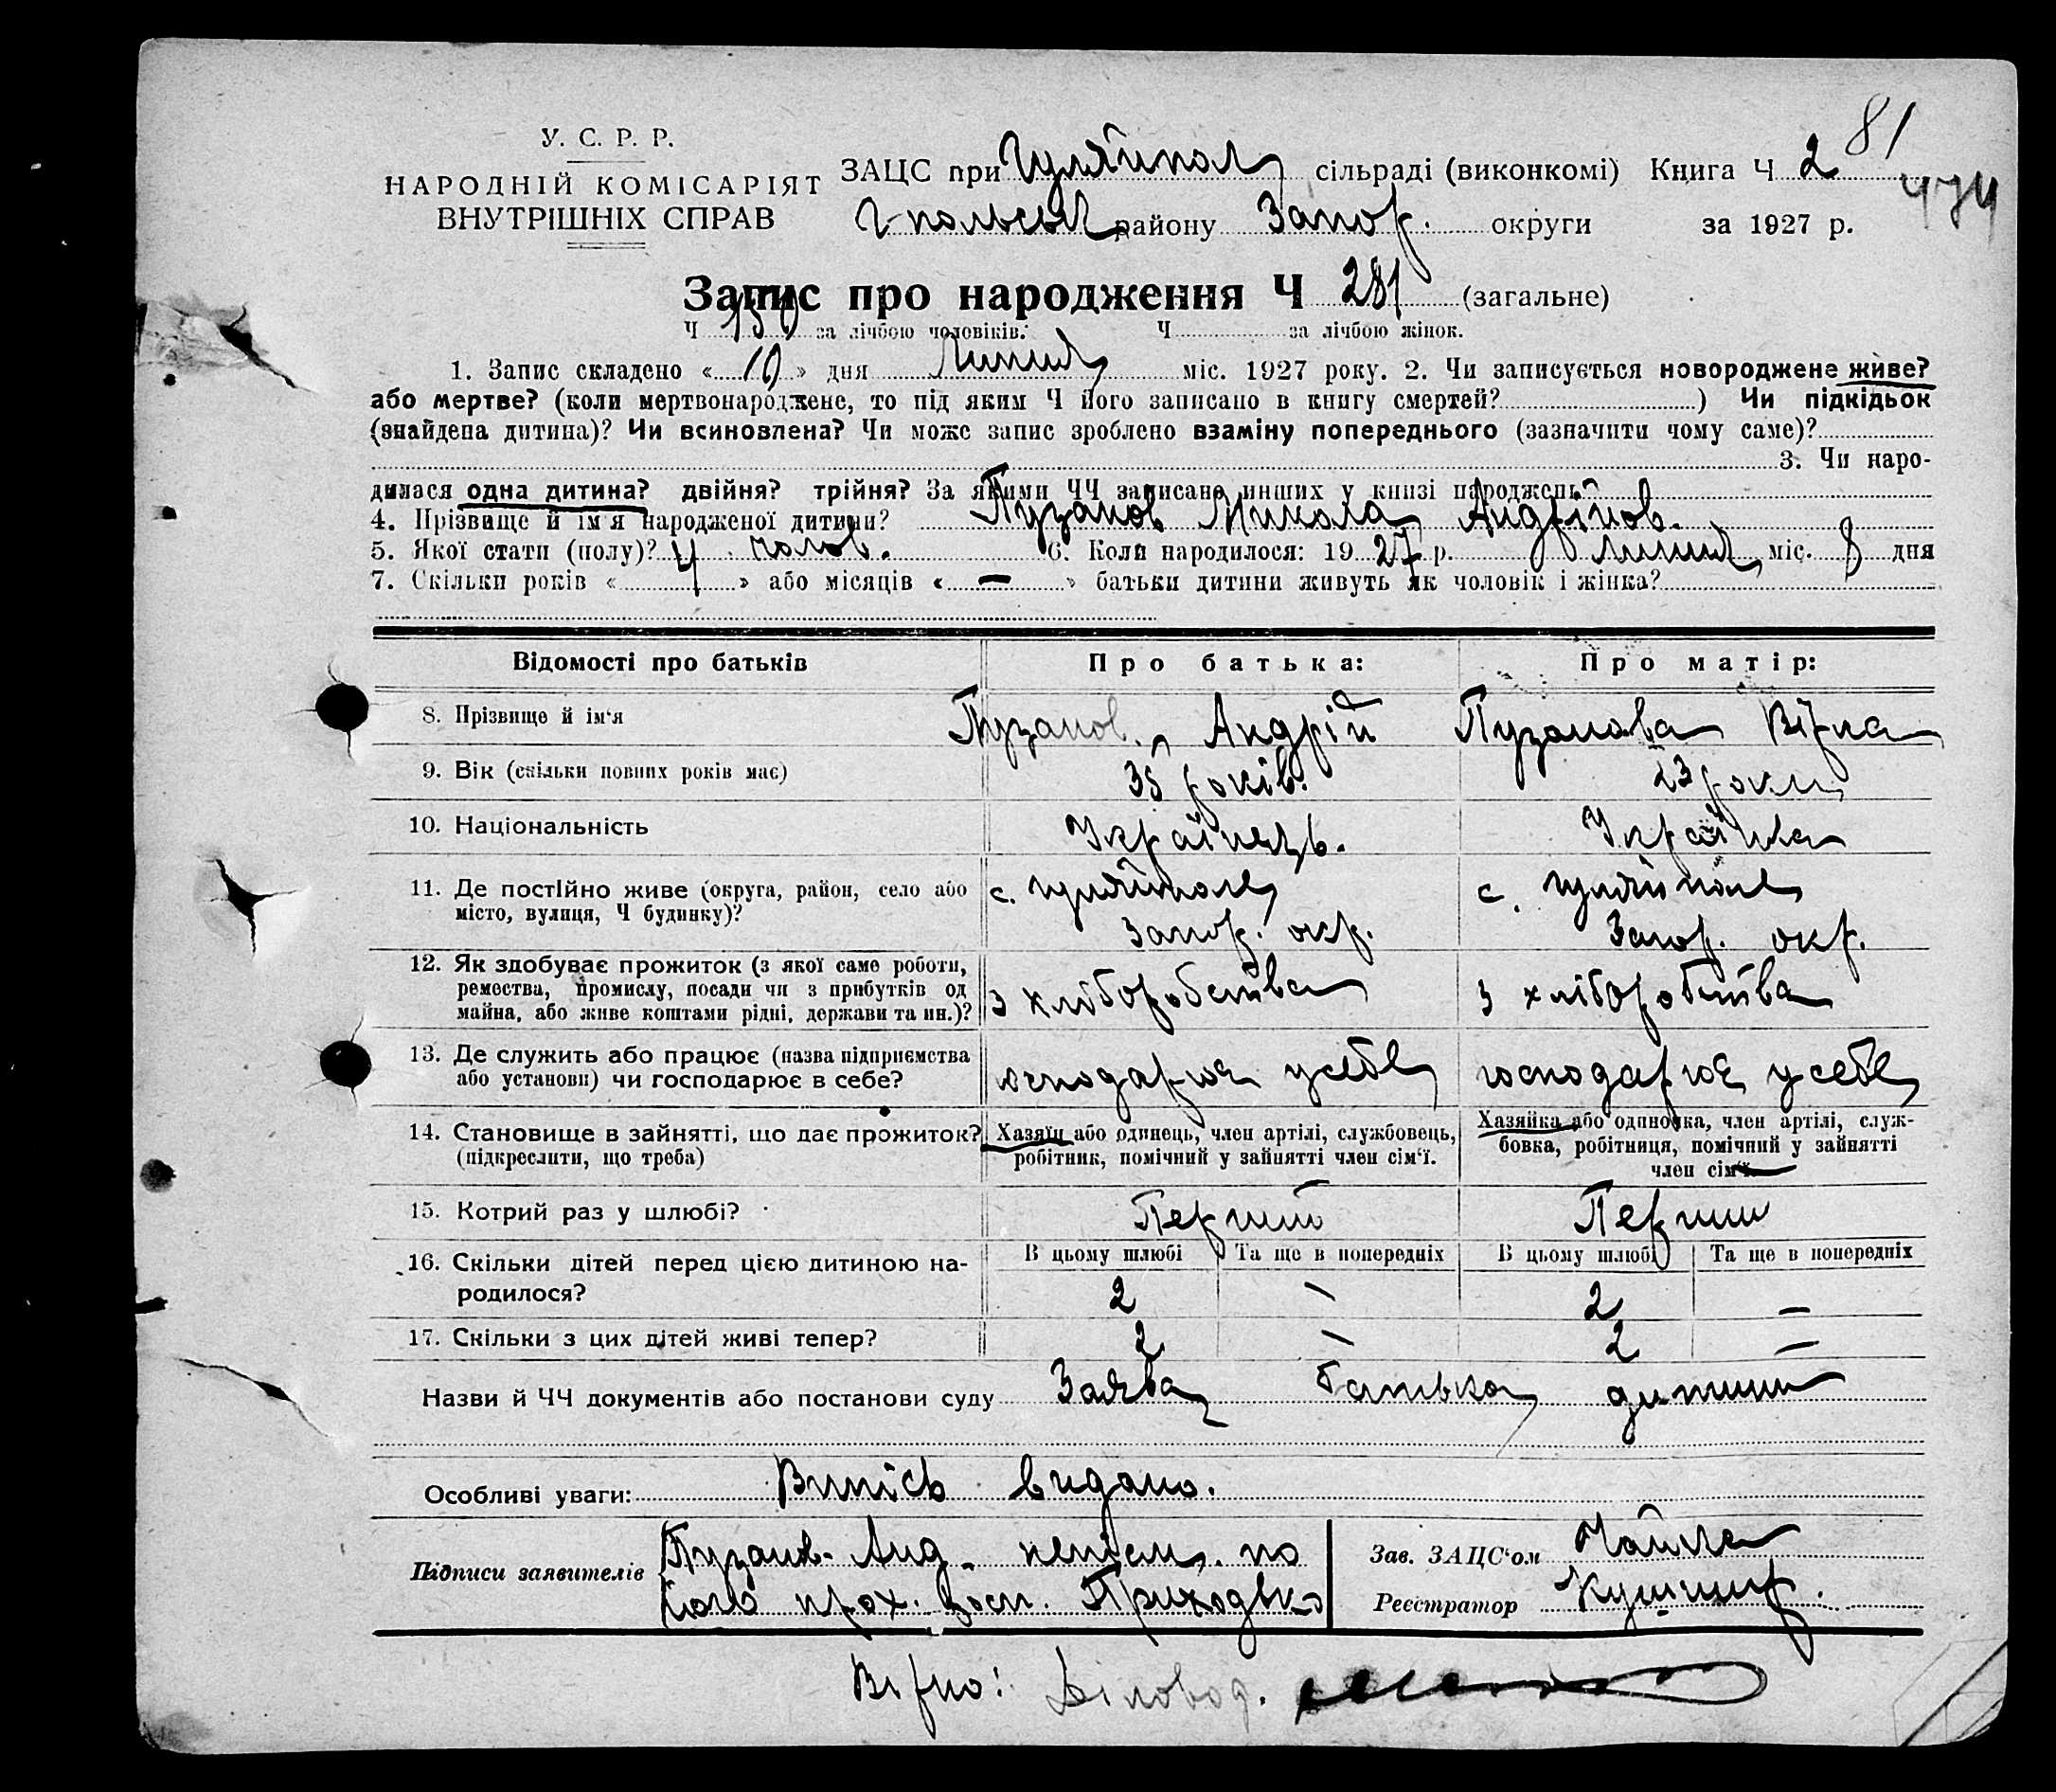 81
У. С. Р. Р.
НАРОДНІЙ КОМІСАРІЯТ
ВНУТРІШНІХ СПРАВ
ЗАЦС при Гуляйпол сільраді (виконкомі) Книга Ч 2
474
району Запор. округи за 1927 р.
Запис про народження Ч 281 (загальне)
Ч за лічбою чоловіків. Ч за лічбою жінок.
1. Запис складено « 10 » дня Липня міс. 1927 року. 2. Чи записується новороджене живе?
або мертве? (коли мертвонароджене, то під яким Ч його записано в книгу смертей? ) Чи підкідьок
(знайдена дитина)? Чи всиновлена? Чи може запис зроблено взаміну попереднього (зазначити чому саме)?
3. Чи наро-
дилася одна дитина? двійня? трійня? За якими ЧЧ записано инших у книзі народжень?
4. Прізвище й ім'я народженої дитини? Пузанов Микола Андрійов.
5. Якої стати (полу)? Ч чолов. 6. Коли народилося: 1927 р. Липня міс. 8 дня
7. Скільки років « 4 » або місяців « — » батьки дитини живуть як чоловік і жінка?
Відомості про батьків Про батька: Про матір:
8. Прізвище й ім'я Пузанов Андрій Пузанова Віра
9. Вік (скільки повних років має) 35 років. 23 роки
10. Національність Українець. Українка
11. Де постійно живе (округа, район, село або
місто, вулиця, Ч будинку)? с. Гуляйполе Запор. окр. с. Гуляйполе Запор. окр.
12. Як здобуває прожиток (з якої саме роботи,
ремества, промислу, посади чи з прибутків од
майна, або живе коштами рідні, держави та ин.)? з хліборобства з хліборобства
13. Де служить або працює (назва підприємства
або установи) чи господарює в себе? господарює у себе господарює у себе
14. Становище в зайнятті, що дає прожиток?
(підкреслити, що треба)
Хазяїн або одинець, член артілі, службовець,
робітник, помічний у зайнятті член сім'ї.
Хазяйка або одиночка, член артілі, служ-
бовка, робітниця, помічний у зайнятті
член сім'ї
15. Котрий раз у шлюбі? Перший Перший
В цьому шлюбі Та ще в попередніх В цьому шлюбі Та ще в попередніх
16. Скільки дітей перед цією дитиною на-
родилося? 2 — 2 —
17. Скільки з цих дітей живі тепер? 2 — 2 —
Назви й ЧЧ документів або постанови суду Заява батька дитини
Особливі уваги: Випісь видано.
Підписи заявителів Пузанов Анд. непісьм. по
його прох. Приходько
Зав. ЗАЦС'ом
Реєстратор Кушнир.
Вірно: Діловод.